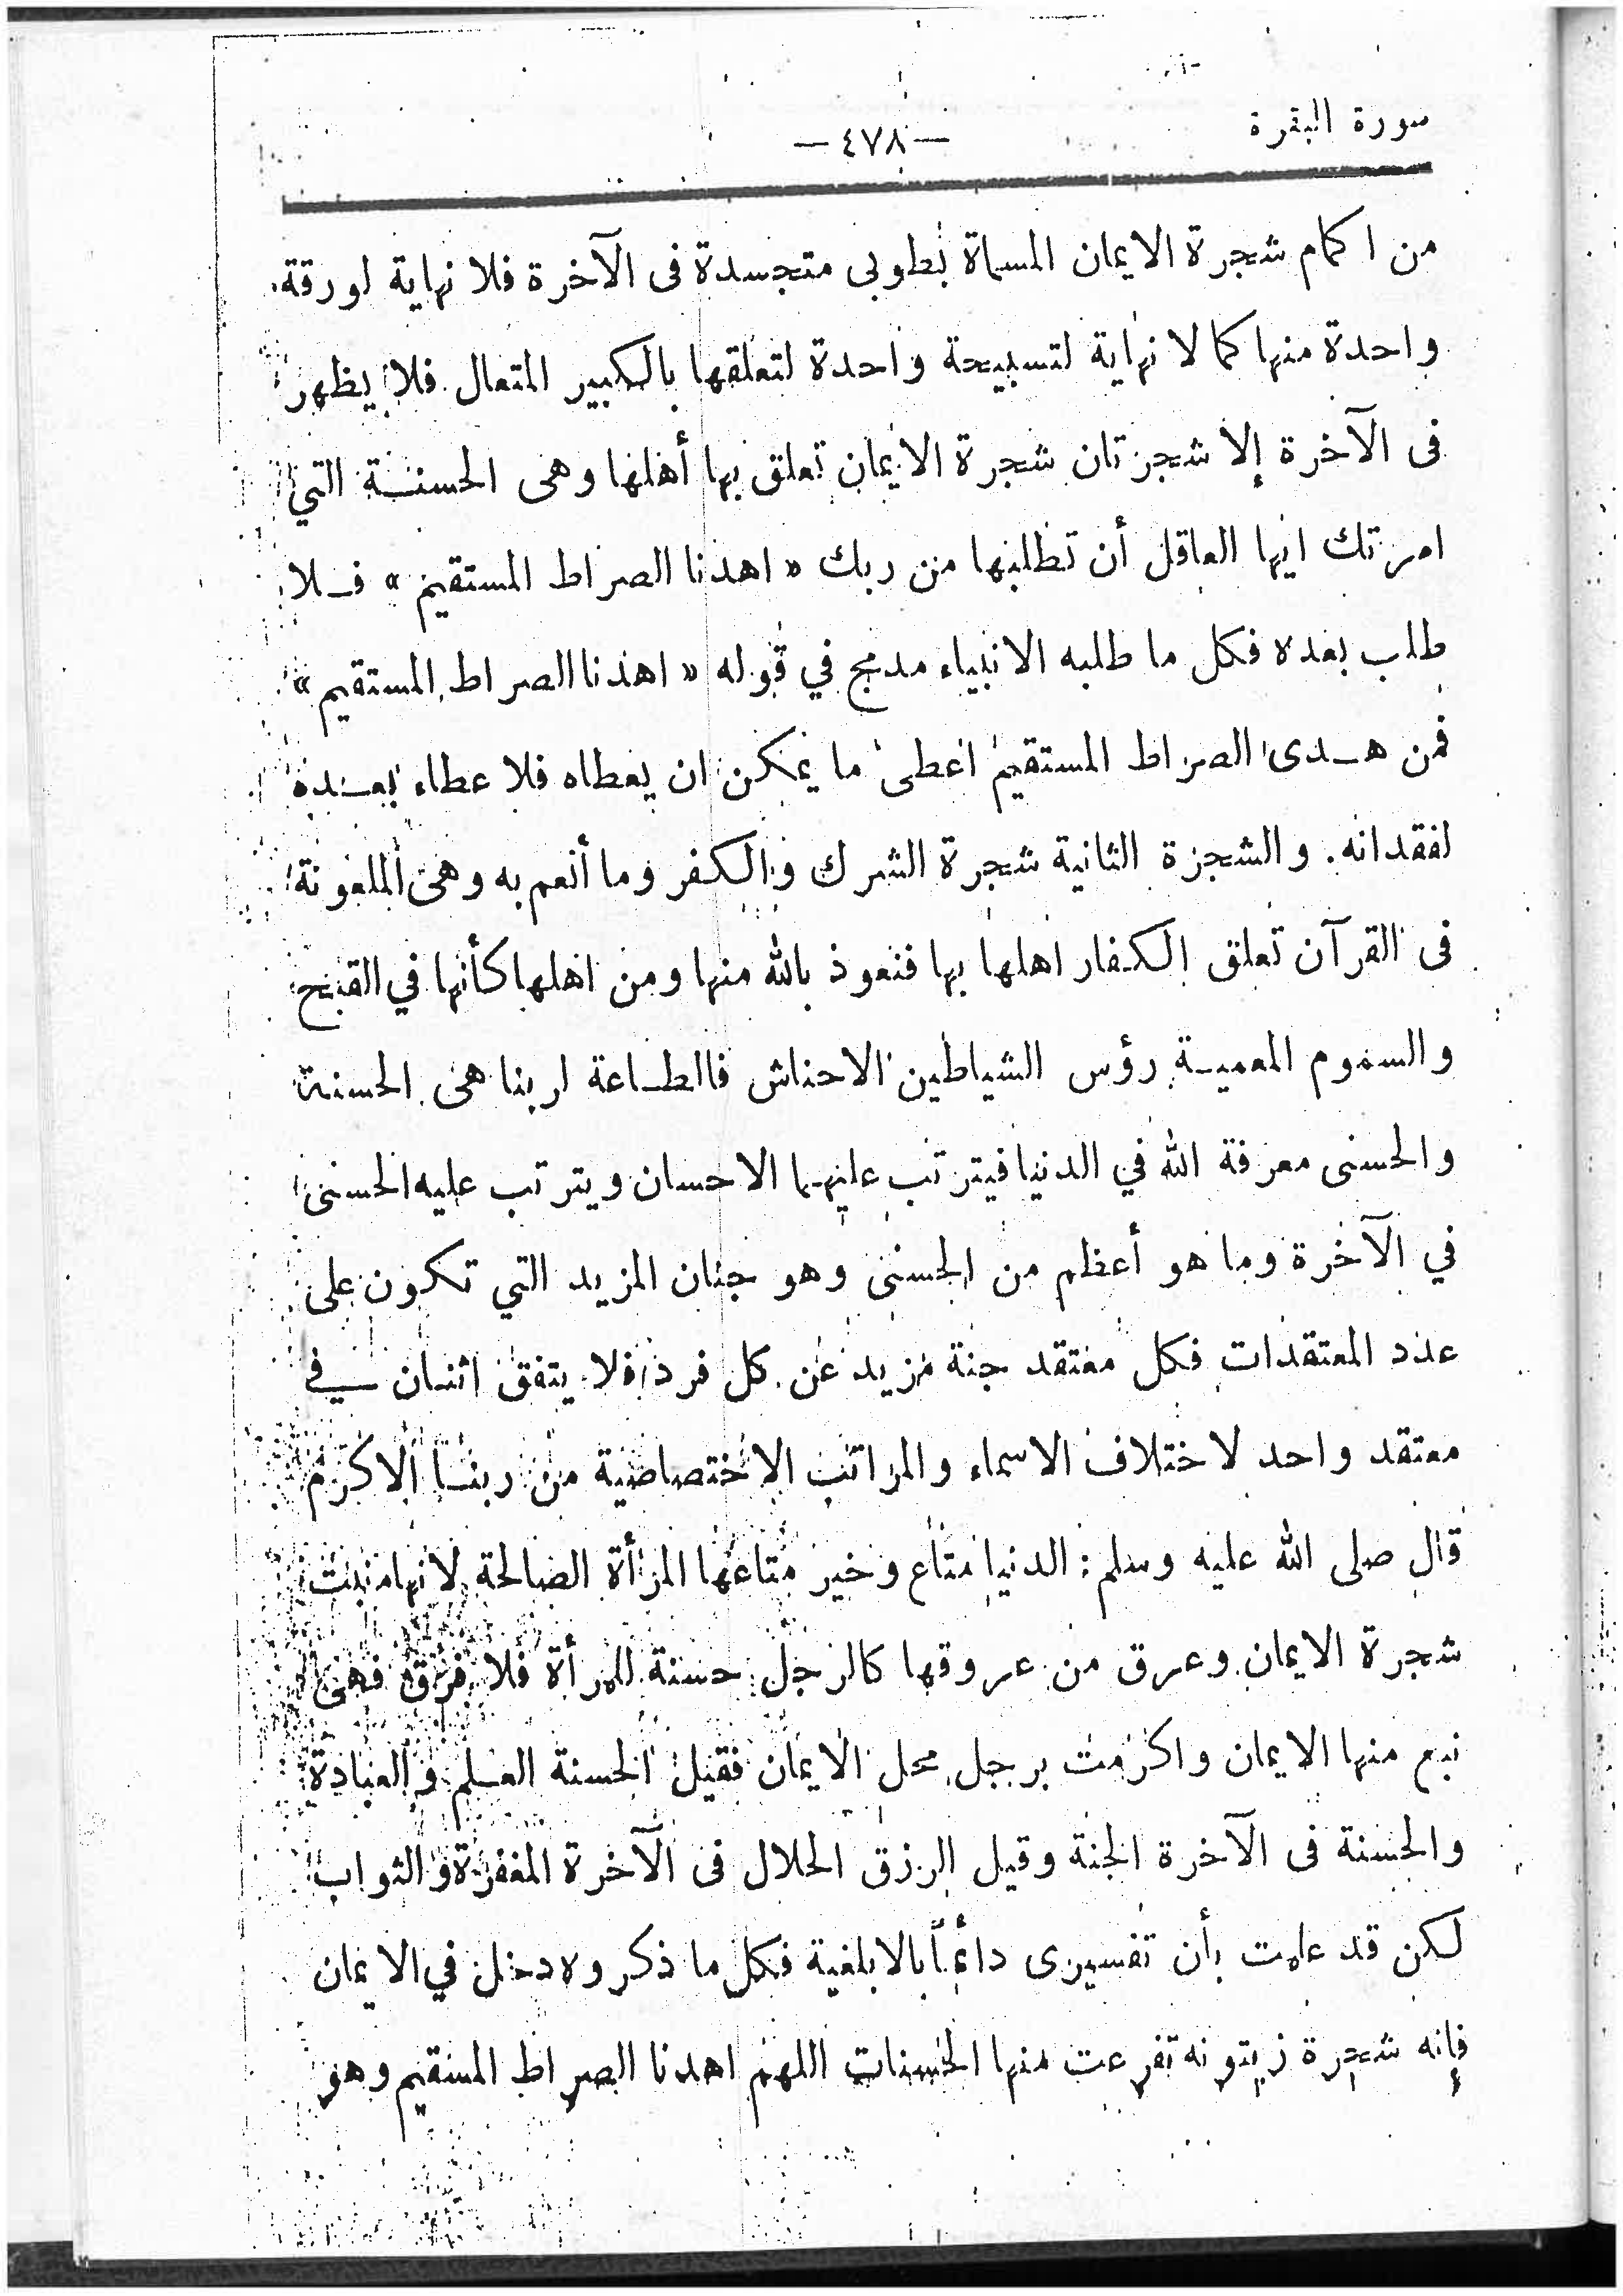 سورة البقرة
—٤٧٨—
من اكمام شجرة الايمان المسماة بطوبى متجسدة فى الآخرة فلا نهاية لورقة
واحدة منها كما لا نهاية لتسبيحة واحدة لتعلقها بالكبير المتعال فلا يظهر
فى الآخرة إلا شجرتان شجرة الايمان تعلق بها أهلها وهى الحسنة التي
امرتك ايها العاقل أن تطلبها من ربك « اهدنا الصراط المستقيم » فلا
طلب بعده فكل ما طلبه الانبياء مدمج في قوله « اهدنا الصراط المستقيم »
فمن هدى الصراط المستقيم اعطى ما يمكن ان يعطاه فلا عطاء بعده
لفقدانه. والشجرة الثانية شجرة الشرك والكفر وما أنعم به وهى الملعونة
فى القرآن تعلق الكفار اهلها بها فنعوذ بالله منها ومن اهلها كأنها في القبح
والسموم المعمية رؤس الشياطين الاحناش فالطاعة لربنا هى الحسنة
والحسنى معرفة الله في الدنيا فيترتب عليهما الاحسان ويترتب عليه الحسنى
في الآخرة وما هو أعظم من الحسنى وهو جنان المزيد التي تكون على
عدد المعتقدات فكل معتقد جنة مزيد عن كل فرد فلا يتفق اثنان في
معتقد واحد لاختلاف الاسماء والمراتب الاختصاصية من ربنا الاكرم
قال صلى الله عليه وسلم : الدنيا متاع وخير متاعها المرأة الصالحة لانها منبت
شجرة الايمان وعرق من عروقها كالرجل حسنة للمرأة فلا فرق فهى
نبع منها الايمان واكرمت برجل محل الايمان فقيل الحسنة العلم والعبادة
والحسنة فى الآخرة الجنة وقيل الرزق الحلال فى الآخرة المغفرة والثواب
لكن قد علمت بأن تفسيرى دائماً بالابلغية فكل ما ذكروه دخل في الايمان
فإنه شجرة زيتونه تفرعت منها الحسنات اللهم اهدنا الصراط المستقيم وهو